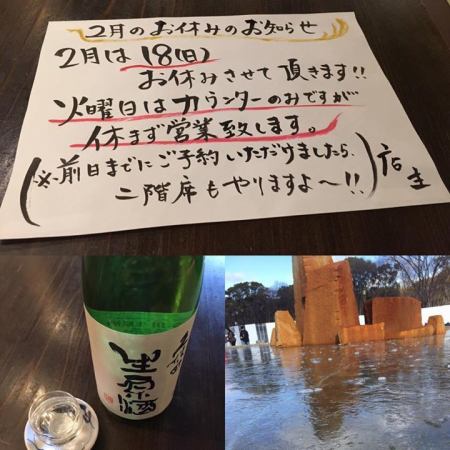 2月のお休みのお知らせ
2月は 18(日)
お休みさせて頂きます!!
火曜日はカウンターのみですが
休まず営業致します。
(※前日までにご予約いただけましたら、
二階席もやりますよ〜!!)店主
生原酒